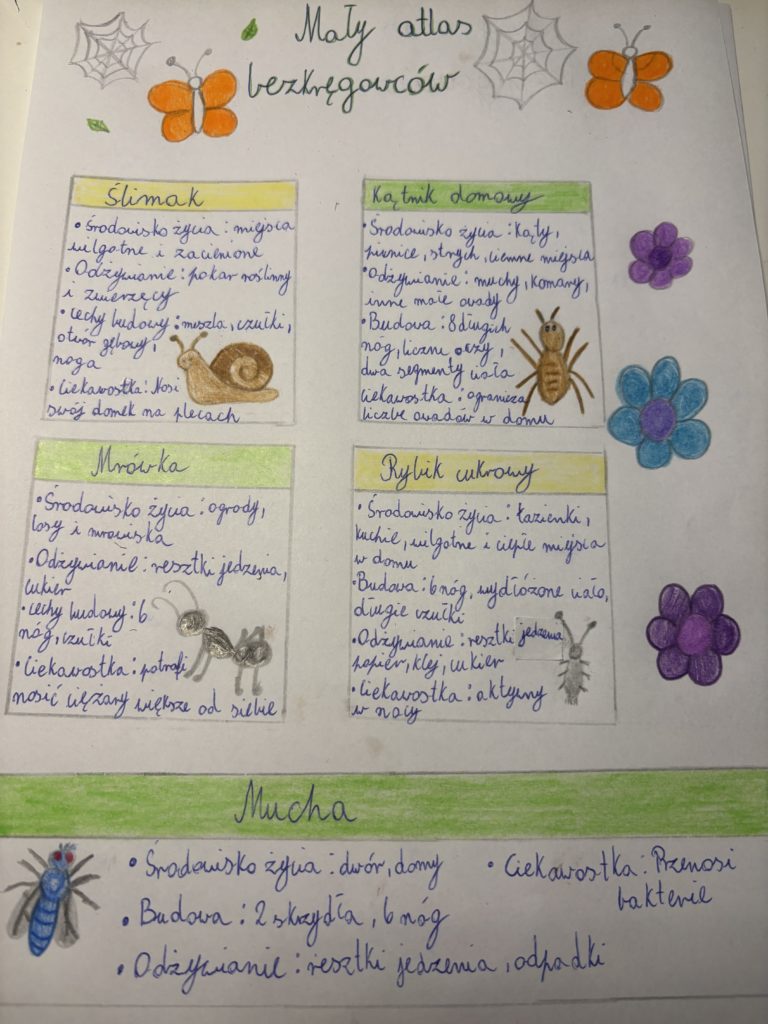 Mały atlas
bezkręgowców
Ślimak
• Środowisko życia : miejsca
wilgotne i zacienione
• Odżywianie : pokar roślinny
i zwierzęcy
• cechy budowy : muszla, czułki,
otwór gębowy,
noga
• Ciekawostka : Nosi
swój domek na plecach
Kątnik domowy
• Środowisko życia : kąty,
piwnice, strych, ciemne miejsca
• Odżywianie : muchy, komary,
inne małe owady
• Budowa : 8 długich
nóg, liczne oczy,
dwa segmenty ciała
ciekawostka : ogranicza
liczbe owadów w domu
Mrówka
• Środowisko życia : ogrody,
lasy i mrowiska
• Odżywianie : resztki jedzenia,
cukier
• cechy budowy : 6
nóg, czułki
• Ciekawostka : potrafi
nosić ciężary większe od siebie
Rybik cukrowy
• Środowisko życia : łazienki,
kuchie, wilgotne i ciepłe miejsca
w domu
• Budowa : 6 nóg, wydłóżone ciało,
długie czułki
• Odżywianie : resztki jedzenia
papier, klej, cukier
• Ciekawostka : aktywny
w nocy
Mucha
• Środowisko życia : dwór, domy
• Budowa : 2 skrzydła, 6 nóg
• Odżywianie : resztki jedzenia, odpadki
• Ciekawostka : Przenosi
bakterie